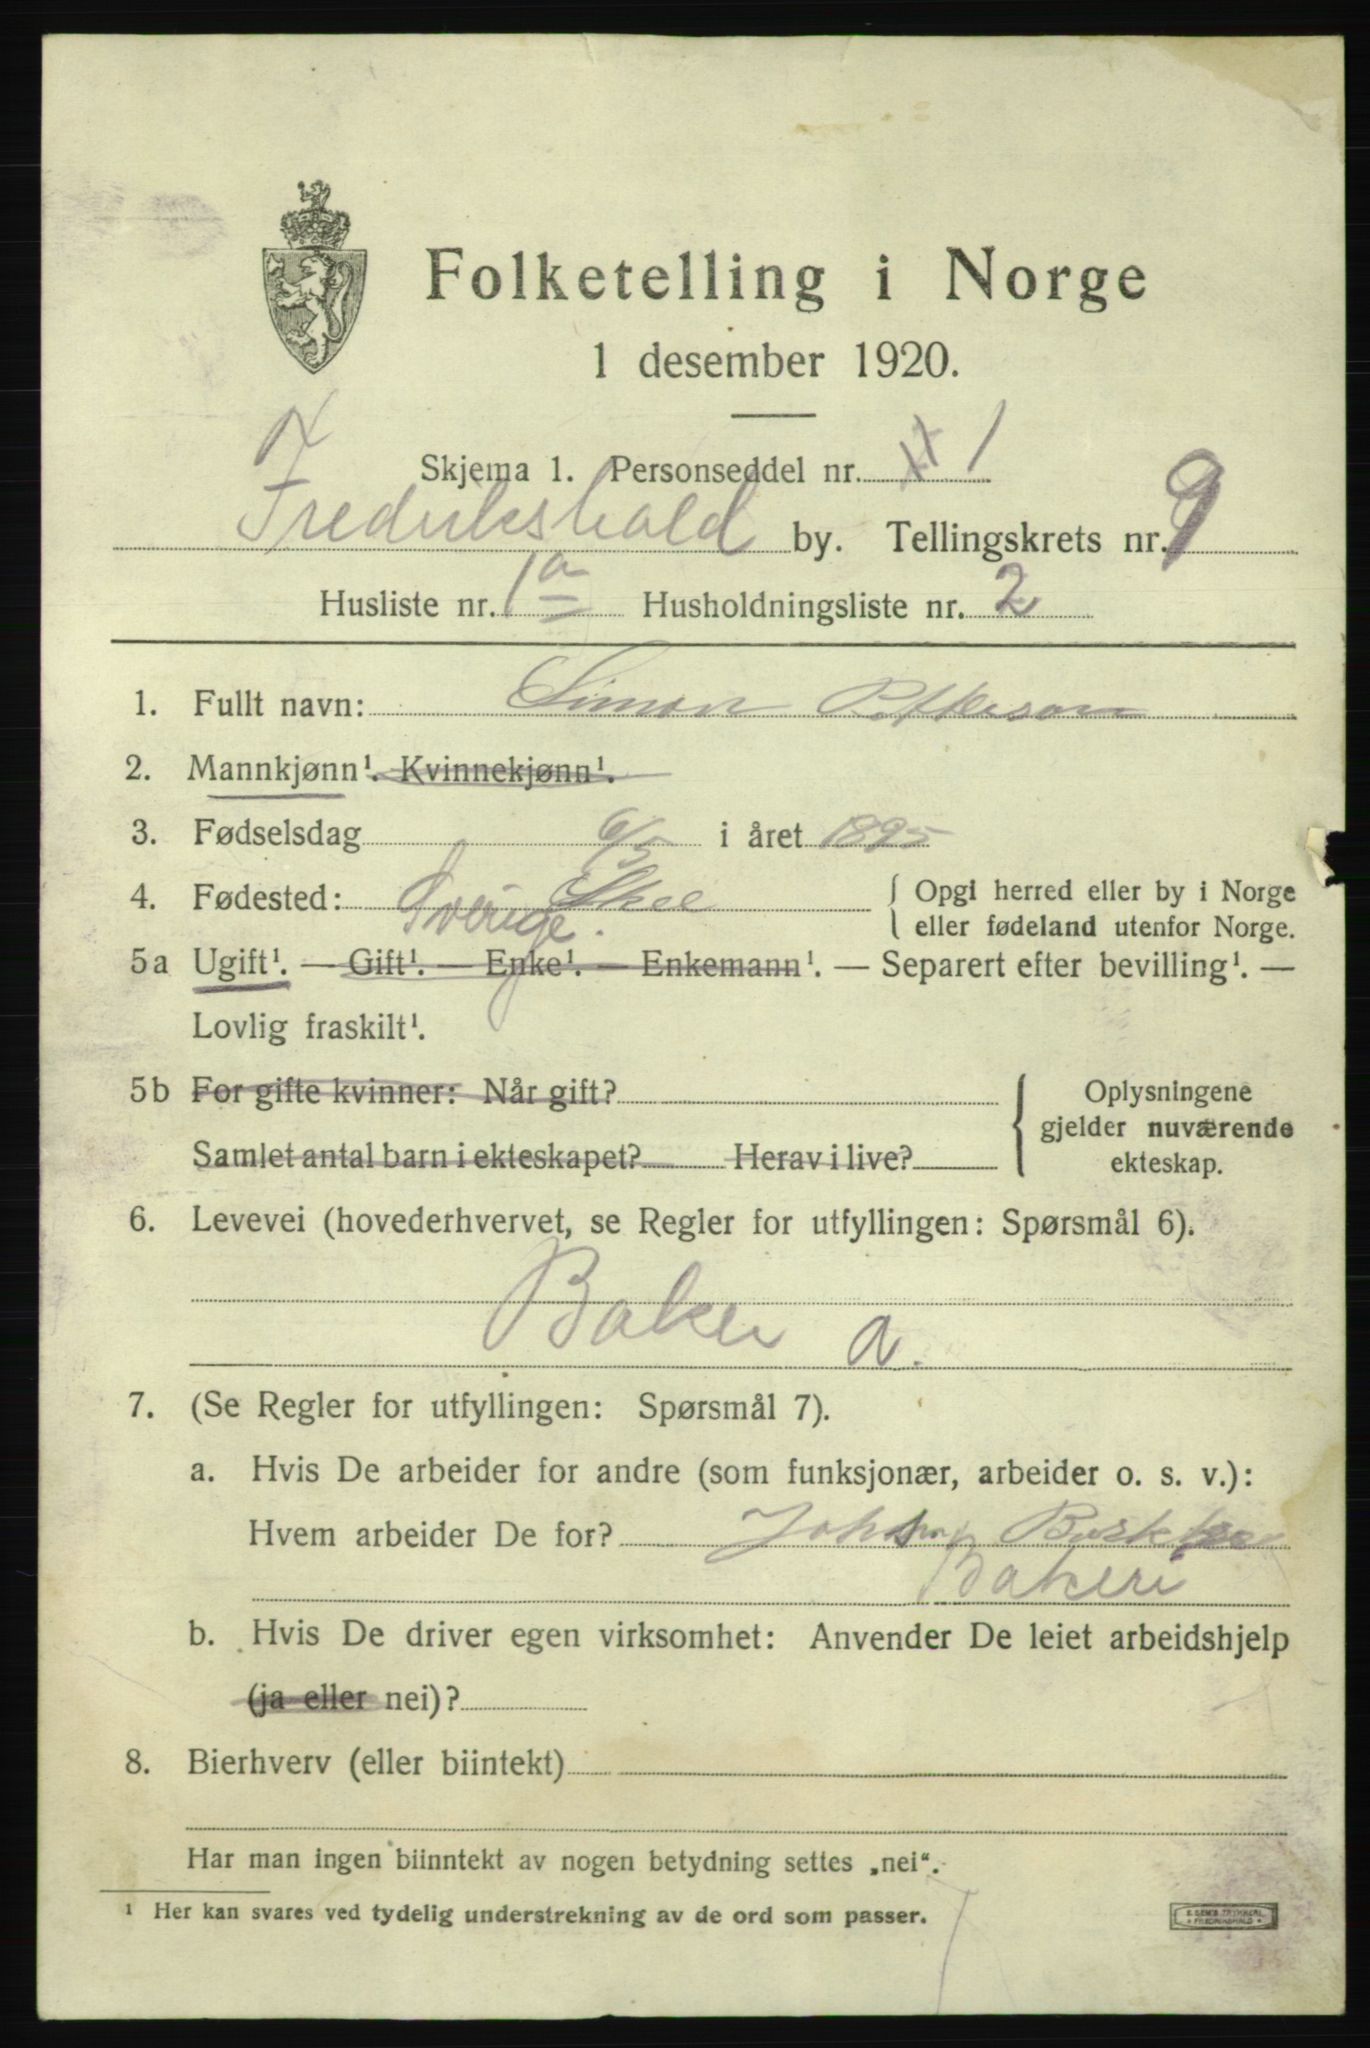 Folketelling i Norge
1 desember 1920.
Skjema 1. Personseddel nr. 1
Fredrikshald by. Tellingskrets nr. 9
Husliste nr. 1a Husholdningsliste nr. 2
1. Fullt navn: Simon Petterson
2. Mannkjønn¹. Kvinnekjønn¹.
3. Fødselsdag 6/5 i året 1895
4. Fødested: Skee { Opgi herred eller by i Norge
Sverige. eller fødeland utenfor Norge.
5a Ugift¹. — Gift¹. — Enke¹. — Enkemann¹. — Separert efter bevilling¹. —
Lovlig fraskilt¹.
5b For gifte kvinner: Når gift? { Oplysningene
gjelder nuværende
Samlet antal barn i ekteskapet? Herav i live?
ekteskap.
6. Levevei (hovederhvervet, se Regler for utfyllingen: Spørsmål 6).
Baker a.
7. (Se Regler for utfyllingen: Spørsmål 7).
a. Hvis De arbeider for andre (som funksjonær, arbeider o. s. v.):
Hvem arbeider De for?
Bakeri
b. Hvis De driver egen virksomhet: Anvender De leiet arbeidshjelp
(ja eller nei)?
8. Bierhverv (eller biintekt)
Har man ingen biinntekt av nogen betydning settes „nei“.
¹ Her kan svares ved tydelig understrekning av de ord som passer.